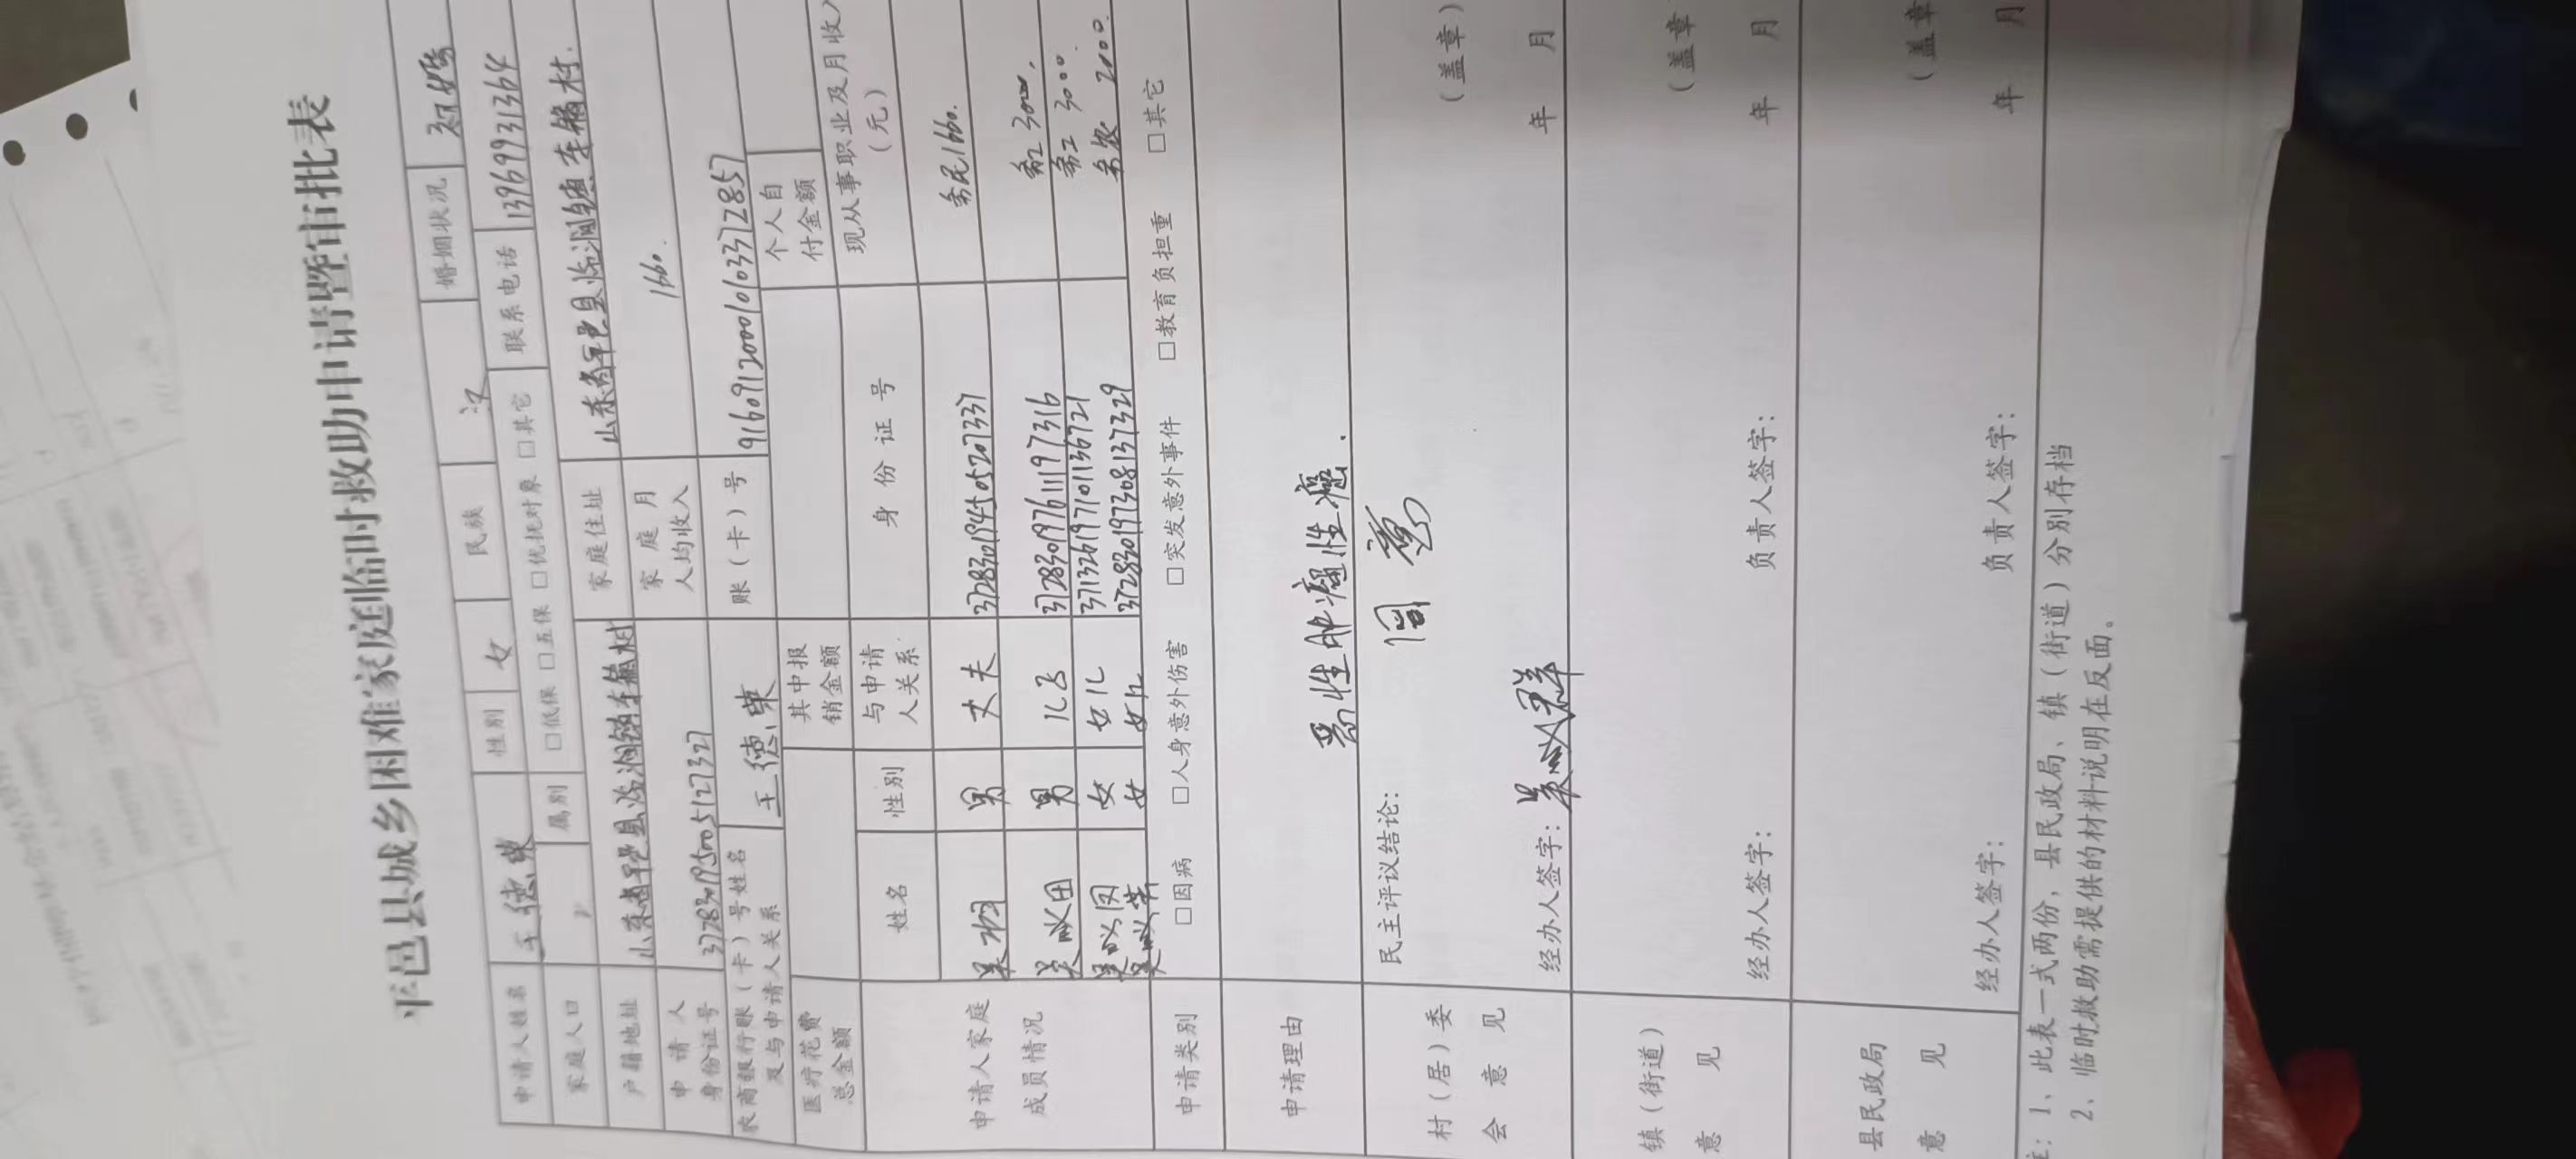 平邑县城乡困难家庭临时救助申请暨审批表
申请人姓名 王德荣 性别 女 民族 汉 婚姻状况 初婚
家庭人口 属别 □低保 □五保 □优抚对象 □其它 联系电话 13969931364
户籍地址 山东省平邑县临涧镇车辋村 家庭住址 山东省平邑县临涧镇车辋村.
申请人身份证号 372830195005127327 家庭月人均收入 1660.
农商银行账（卡）号姓名及与申请人关系 王德荣 账（卡）号 9160912000101033712857
医疗花费总金额 其中报销金额 个人自付金额
申请人家庭成员情况
姓名 性别 与申请人关系 身份证号 现从事职业及月收入（元）
男 丈夫 372830194505207337 务民1660.
男 儿子 372830197611197316 务工 3000.
女 女儿 371326197101136721 务工 3000.
女 女儿 372830197308137329 务农 2000.
申请类别 □因病 □人身意外伤害 □突发意外事件 □教育负担重 □其它
申请理由 恶性肿瘤性癌.
村（居）委会意见
民主评议结论： 同意
经办人签字： （盖章）
年 月
镇（街道）意见
经办人签字： 负责人签字： （盖章
年 月
县民政局意见
经办人签字： 负责人签字： （盖章
年 月
注：1、此表一式两份，县民政局、镇（街道）分别存档
2、临时救助需提供的材料说明在反面。